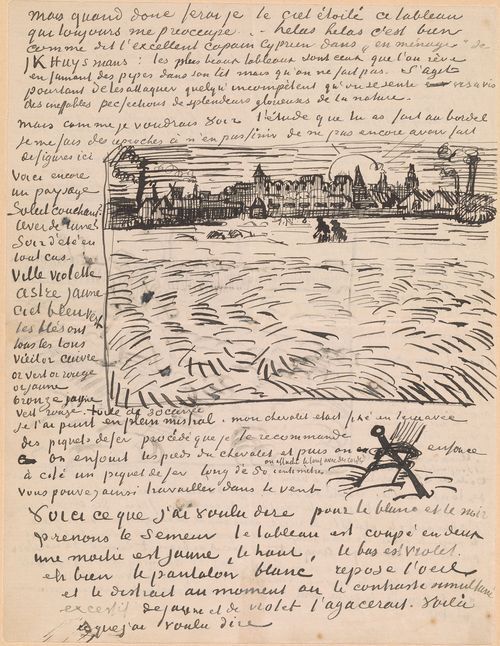 mais quand donc ferai je le ciel étoilé ce tableau
qui toujours me préoccupe.. – helas helas c'est bien
comme dit l'excellent copain Cyprien dans "en ménage" de
J K Huysmans: les plus beaux tableaux sont ceux que l'on rêve
en fumant des pipes dans son lit mais qu'on ne fait pas. S'agit
pourtant de les attaquer quelqu'incompétent qu'on se sente vis à vis
des ineffables perfections de splendeurs glorieuses de la nature.
Mais comme je voudrais voir l'étude que tu as fait au bordel
Je me fais des reproches à n'en pas finir de ne pas encore avoir fait
de figures ici
Voici encore
un paysage
Soleil couchant?
lever de lune?
Soir d'été en
tout cas.
Ville violette
astre jaune
ciel bleu vert
les blés ont
tous les tons
vieil or cuivre
or vert or rouge
or jaune
bronze jaune
vert rouge. toile de 30 carrée
Je l'ai peint en plein mistral. mon chevalet etait fixé en terre avec
des piquets de fer procédé que je te recommande
on enfouit les pieds du chevalet et puis on enfonce
à côté un piquet de fer long de 50 centimètres
on attache le tout avec des cordes
vous pouvez ainsi travailler dans le vent
Voici ce que j'ai voulu dire pour le blanc et le noir
prenons le Semeur le tableau est coupé en deux
une moitié est jaune, le haut, le bas est violet.
eh bien le pantalon blanc repose l'oeil
et le distrait au moment où le contraste simultané
excessif de jaune et de violet l'agacerait. Voilà
ce que j'ai voulu dire